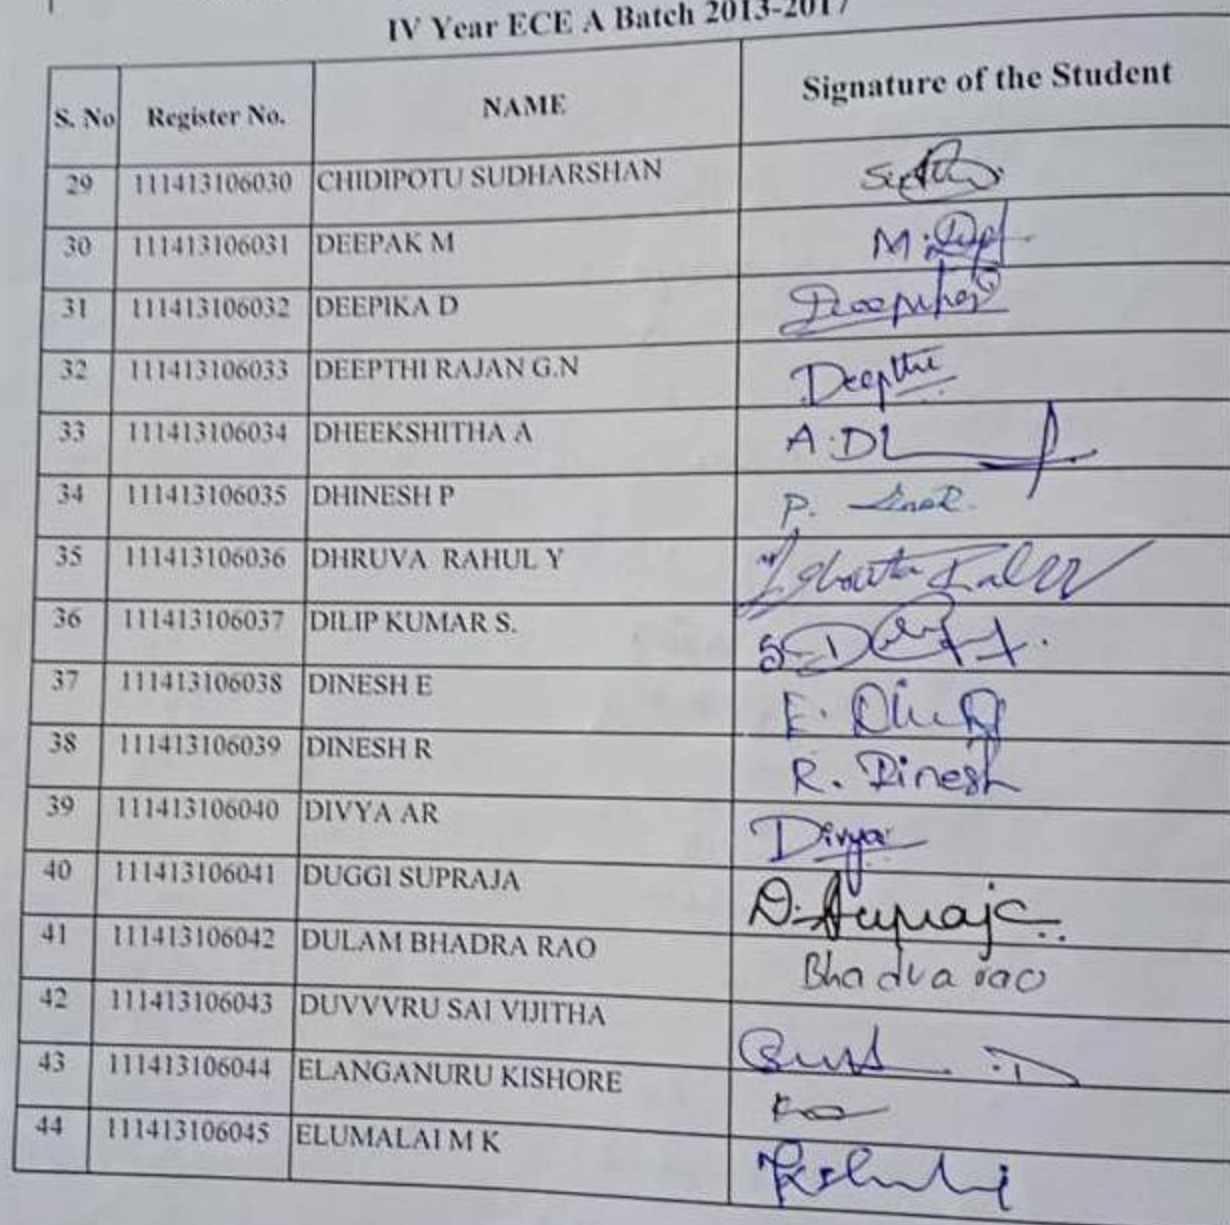 IV Year ECE A Batch 2013-2017
S. No Register No. NAME Signature of the Student
29 111413106030 CHIDIPOTU SUDHARSHAN
30 111413106031 DEEPAK M M.
31 111413106032 DEEPIKA D
32 111413106033 DEEPTHI RAJAN G.N Deepthi
33 111413106034 DHEEKSHITHA A
34 111413106035 DHINESH P P.
35 111413106036 DHRUVA RAHUL Y
36 111413106037 DILIP KUMAR S.
37 111413106038 DINESH E E.
38 111413106039 DINESH R R. Dinesh
39 111413106040 DIVYA AR Divya
40 111413106041 DUGGI SUPRAJA D. Supraja
41 111413106042 DULAM BHADRA RAO Bhadra rao
42 111413106043 DUVVVRU SAI VIJITHA
43 111413106044 ELANGANURU KISHORE
44 111413106045 ELUMALAI M K